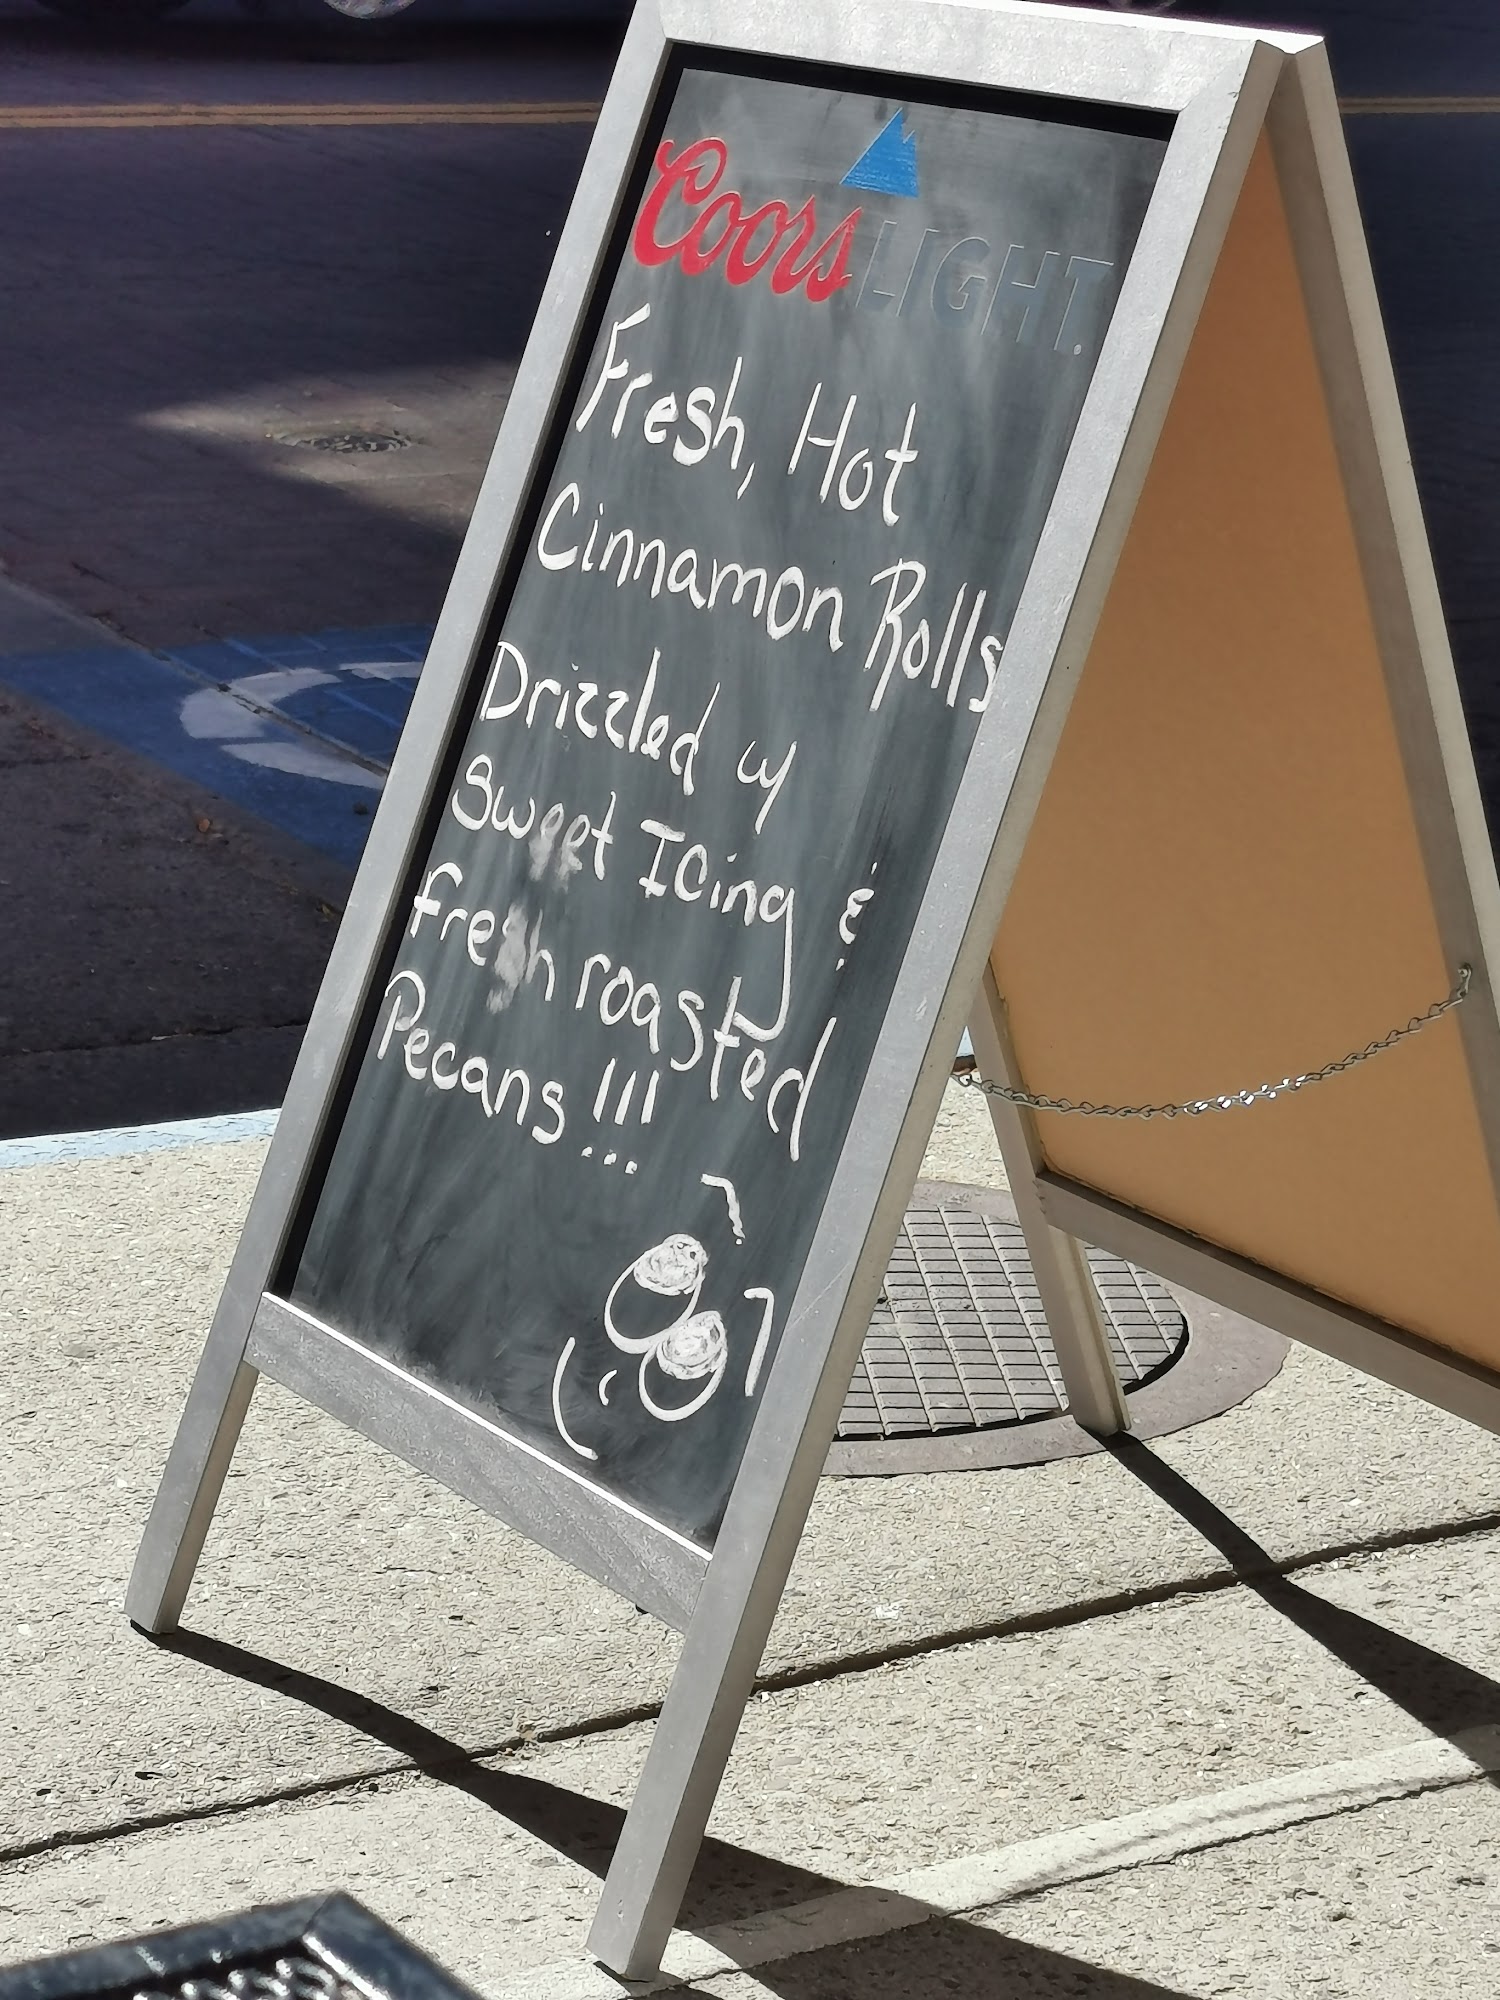 Coors LIGHT.
Fresh, Hot
Cinnamon Rolls
Drizzled w/
Sweet Icing &
fresh roasted
Pecans!!!